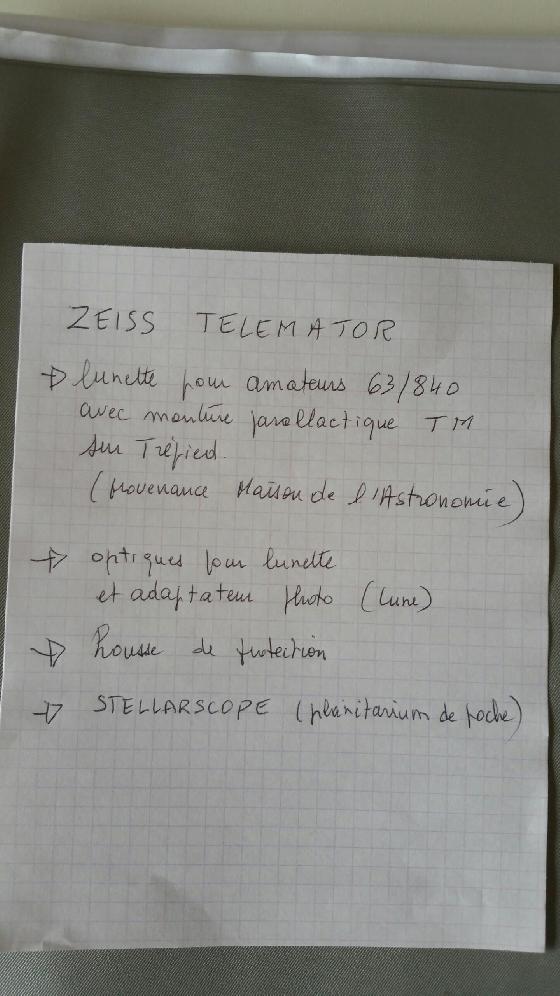 ZEISS TELEMATOR
→ lunette pour amateurs 63/840
avec monture parallactique TM
sur Trépied.
(provenance Maison de l'Astronomie)
→ optiques pour lunette
et adaptateur photo (lune)
→ housse de protection
→ STELLARSCOPE (planitarium de poche)